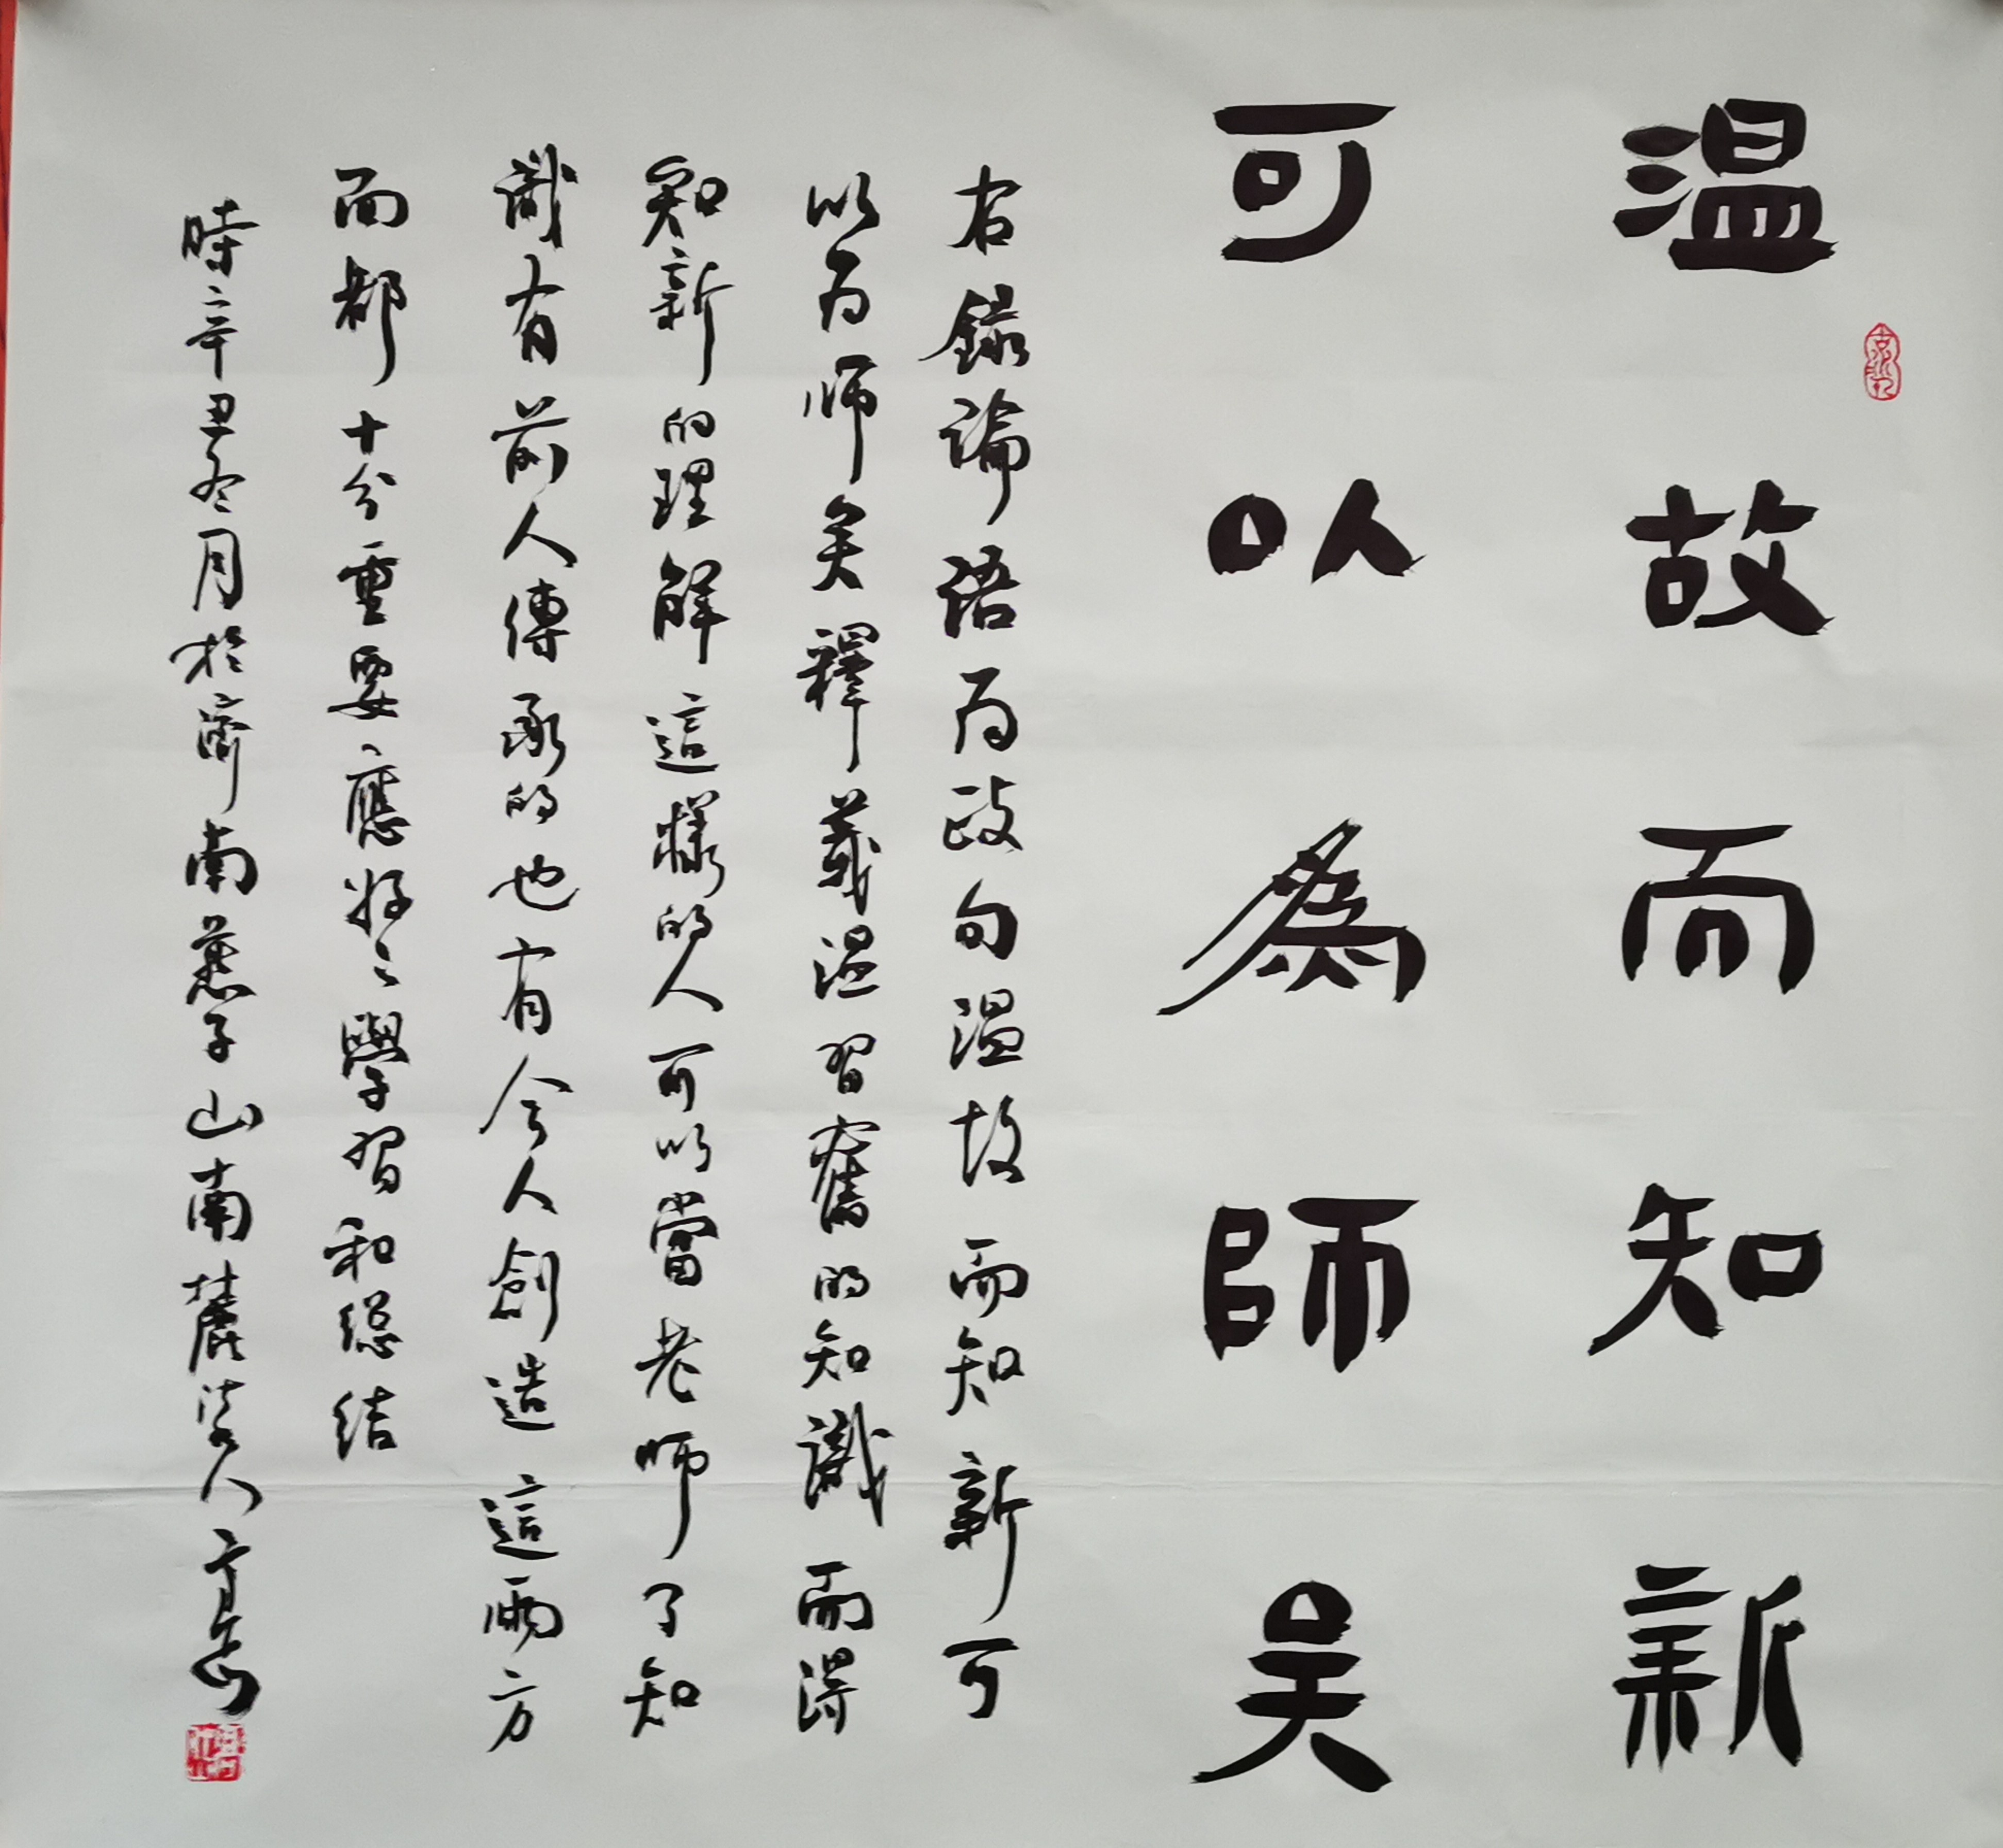 温故而知新
可以為師矣
右録論語為政句温故而知新可
以为师矣釋義温習舊的知識而得
知新的理解這樣的人可以當老师了知
識有前人傳承的也有今人創造這兩方
面都十分重要應好之學習和總結
時辛丑冬月於濟南燕子山南麓法人